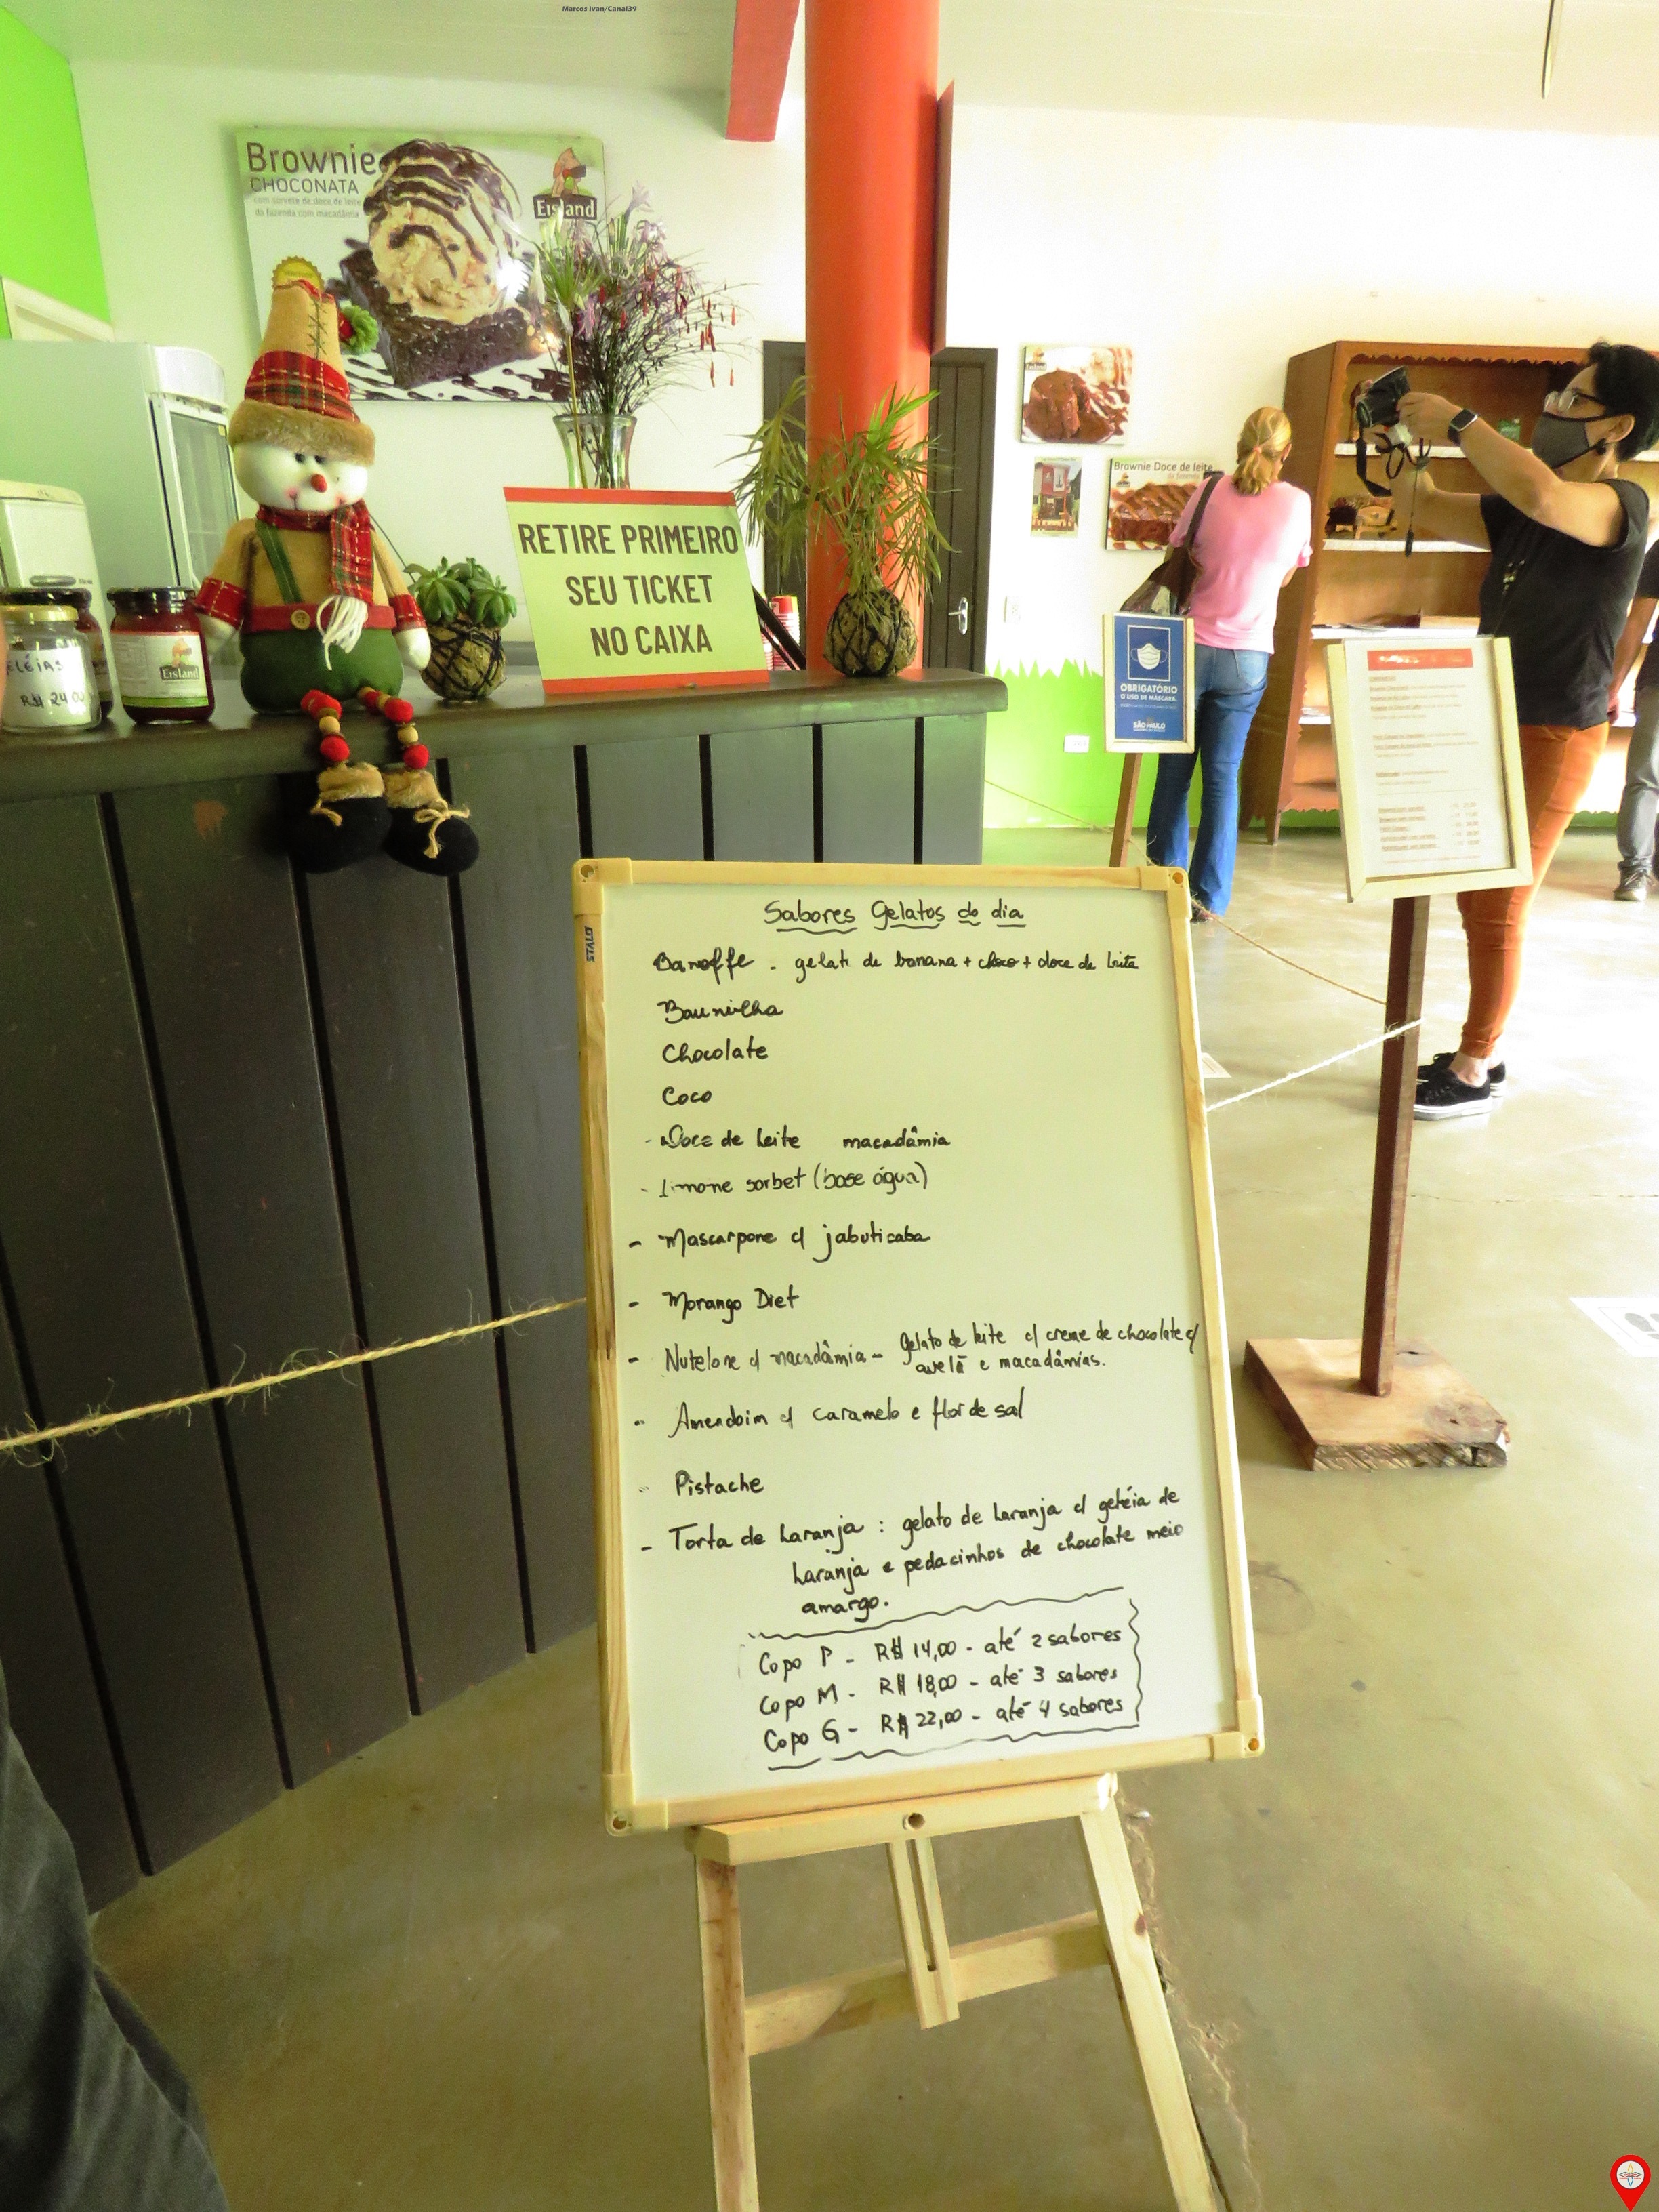 Marcos Ivan/Canal39
Brownie
CHOCONATA
com sorvete de doce de leite
da fazenda com macadâmia
Eisland
RETIRE PRIMEIRO
SEU TICKET
NO CAIXA
GELÉIAS
R$ 24,00
Eisland
Brownie Doce de leite
da fazenda
OBRIGATÓRIO
O USO DE MÁSCARA.
SÃO PAULO
STALO
Sabores Gelatos do dia
Banoffe - gelato de banana + choco + doce de leite
Baunilha
Chocolate
Coco
- Doce de leite macadâmia
- Limone sorbet (base água)
- Mascarpone c/ jabuticaba
- Morango Diet
- Nutelone c/ macadâmia - gelato de leite c/ creme de chocolate c/
avelã e macadâmias.
- Amendoim c/ caramelo e flor de sal
- Pistache
- Torta de laranja : gelato de laranja c/ geléia de
laranja e pedacinhos de chocolate meio
amargo.
Copo P - R$ 14,00 - até 2 sabores
Copo M - R$ 18,00 - até 3 sabores
Copo G - R$ 22,00 - até 4 sabores